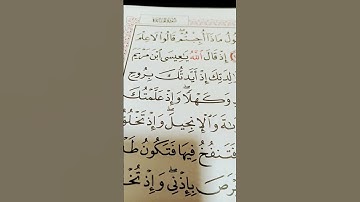 مَاذَآ أُجِبْتُمْ ۖ قَالُوا۟ لَا عِلْمَ
إِذْ قَالَ ٱللَّهُ يَـٰعِيسَى ٱبْنَ مَرْيَمَ
لِدَتِكَ إِذْ أَيَّدتُّكَ بِرُوحِ
وَكَهْلًا ۖ وَإِذْ عَلَّمْتُكَ
وَٱلْإِنجِيلَ ۖ وَإِذْ تَخْلُقُ
فَتَنفُخُ فِيهَا فَتَكُونُ طَ
رَصَ بِإِذْنِى ۖ وَإِذْ تُخْ